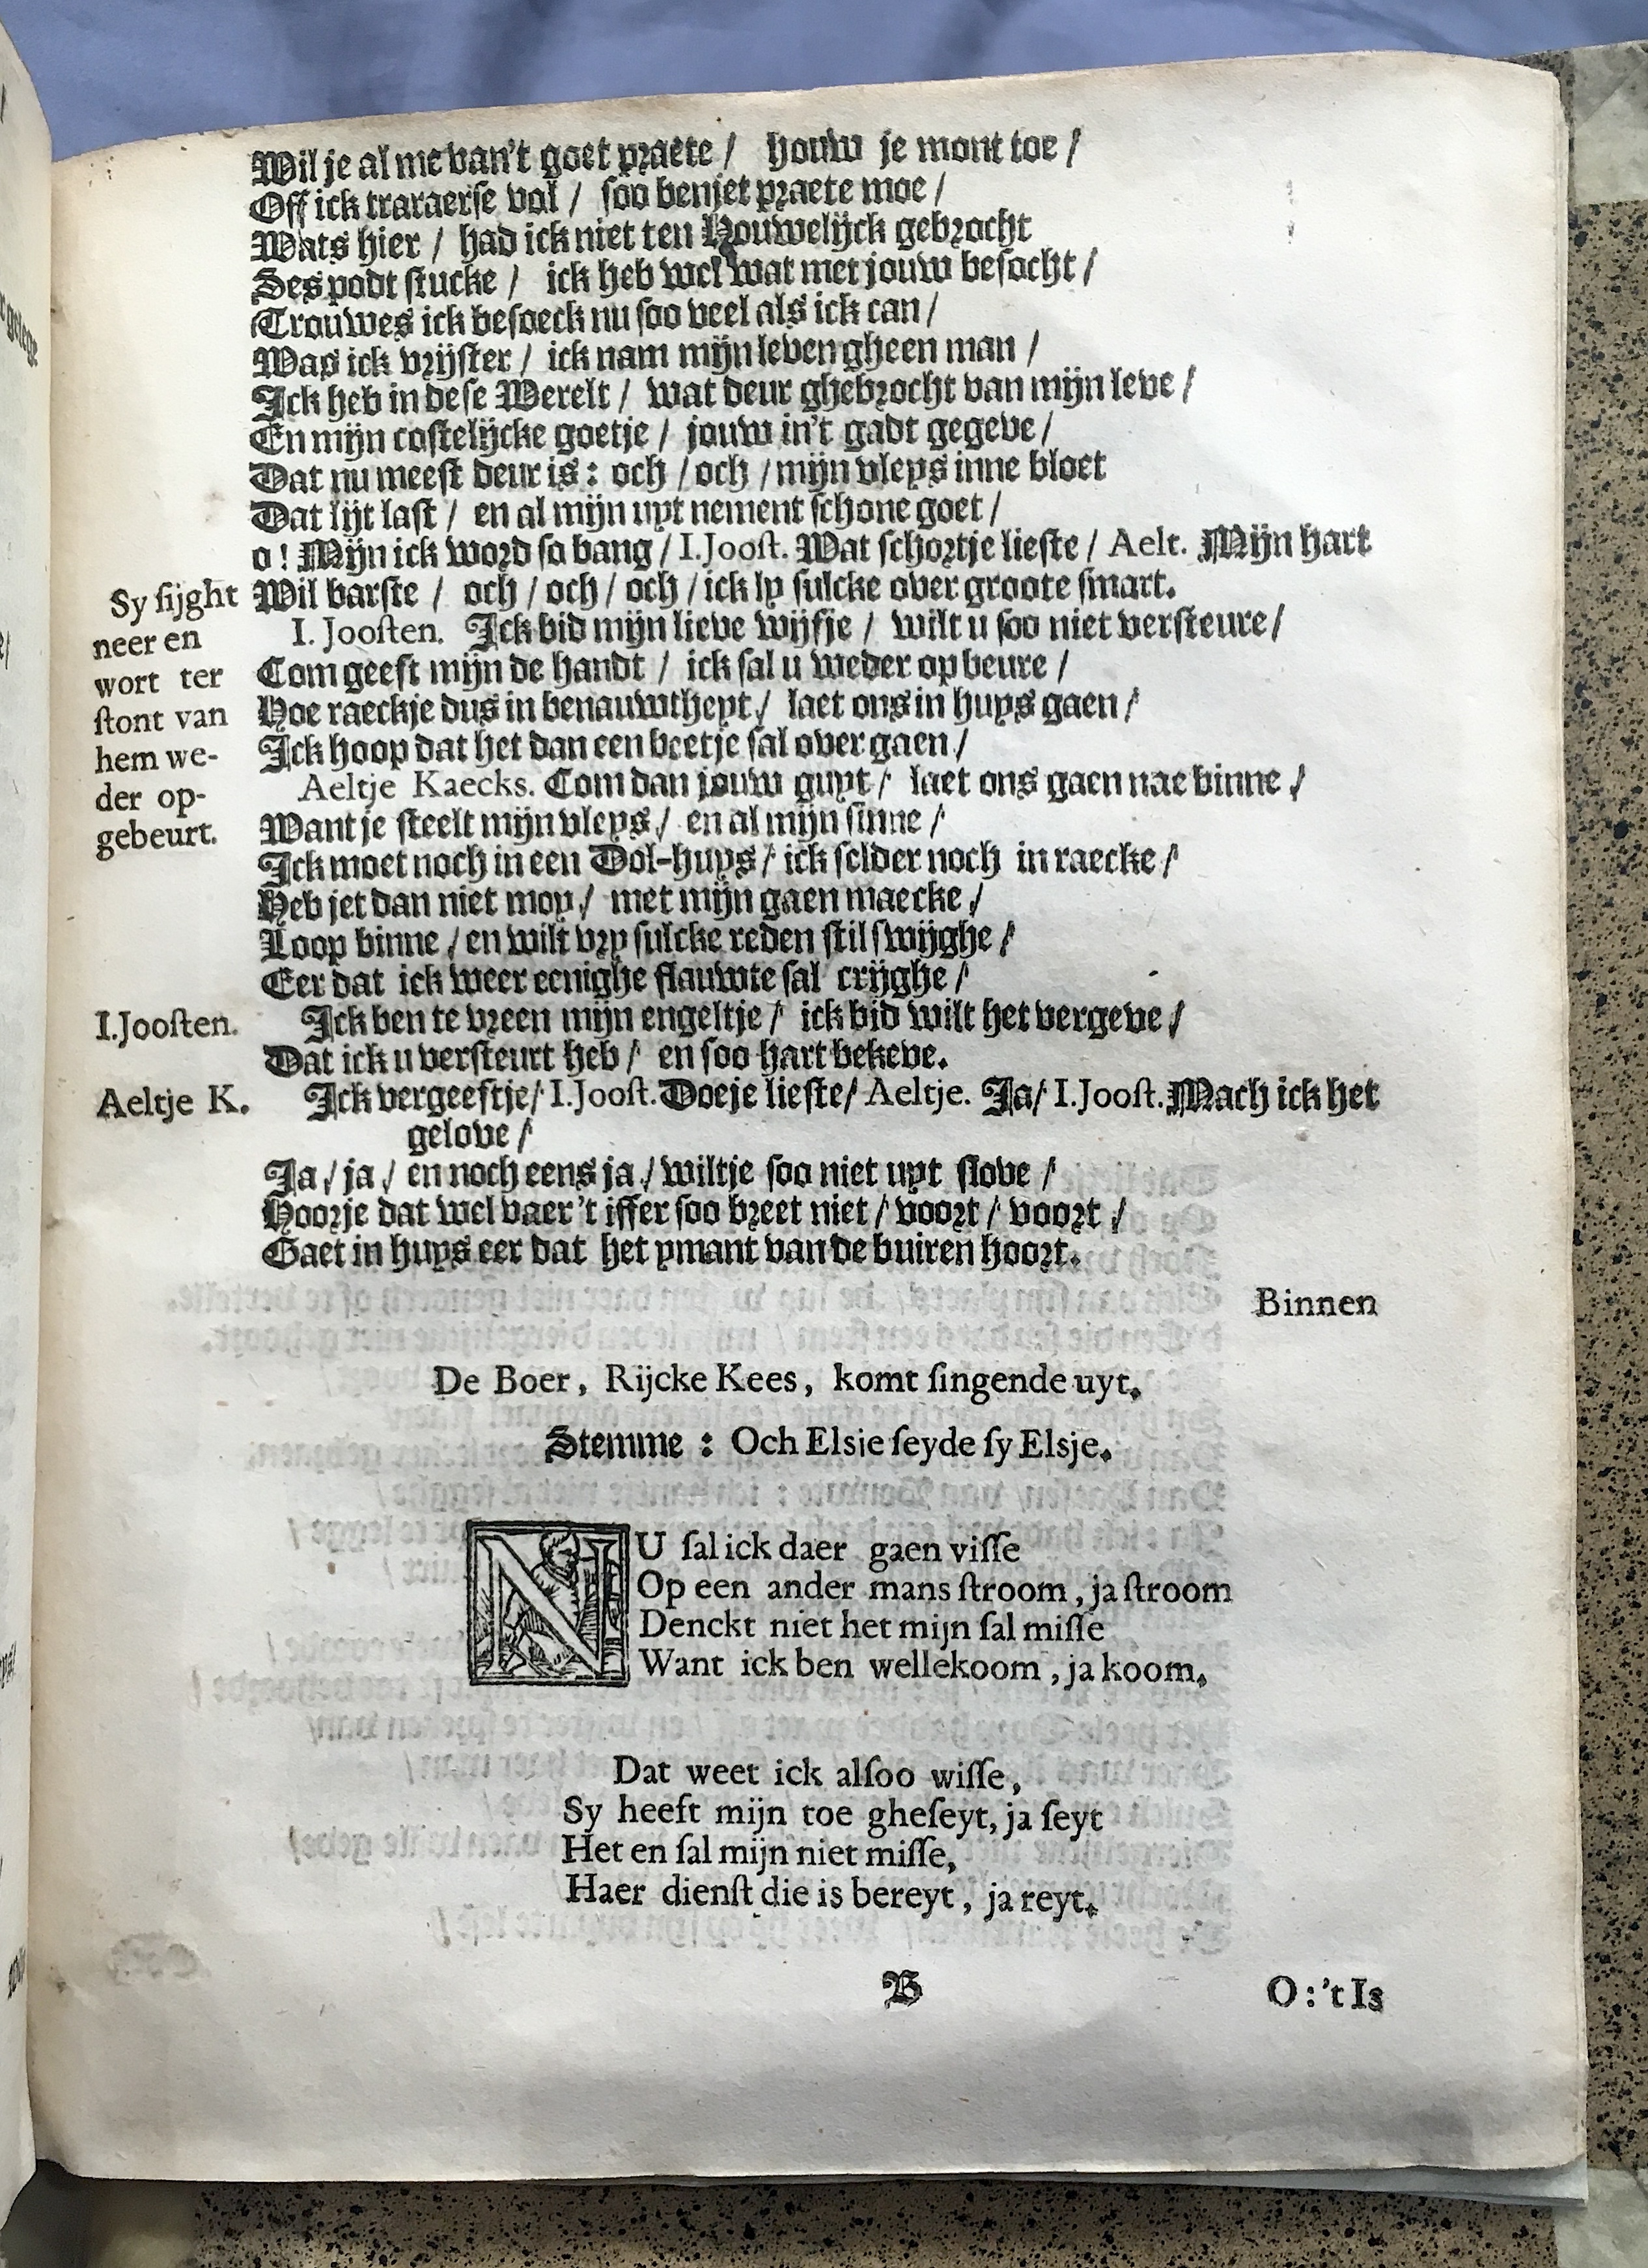 Wil je al met van't goet praete / houw je mont toe /
Off ick traraerse vol / soo benjet praete moe /
Wats hier / had ick niet ten Houwelijck gebrocht
Ses podt stucke / ick heb wel wat met jouw besocht /
Trouwes ick besoeck nu soo veel als ick can /
Was ick vrijster / ick nam mijn leven gheen man /
Ick heb in dese Werelt / wat deur ghebrocht van mijn leve /
En mijn costelijcke goetje / jouw in't gadt gegeve /
Dat nu meest deur is : och / och / mijn vleys inne bloet
Dat lijt last / en al mijn uyt nement schone goet /
o ! Mijn ick word so bang / I. Jooſt. Wat schortje lieste / Aelt. Mijn hart
Wil barste / och / och / och / ick ly sulcke over groote smart.
Sy ſijght
neer en
wort ter
ſtont van
hem we-
der op-
gebeurt.
I. Jooſten. Ick bid mijn lieve wijfje / wilt u soo niet versteure /
Com geeft mijn de handt / ick sal u weder op beure /
Hoe raeckje dus in benauwtheyt / laet ons in huys gaen /
Ick hoop dat het dan een beetje sal over gaen /
Aeltje Kaecks. Com dan jouw guyt / laet ons gaen nae binne /
Want je steelt mijn vleys / en al mijn sinne /
Ick moet noch in een Dol-huys / ick selder noch in raecke /
Heb jet dan niet moy / met mijn gaen maecke /
Loop binne / en wilt vry sulcke reden stil swijghe /
Eer dat ick weer eenighe flauwte sal crijghe /
I. Jooſten. Ick ben te vreen mijn engeltje / ick bid wilt het vergeve /
Dat ick u versteurt heb / en soo hart bekeve.
Aeltje K. Ick vergeeftje / I. Jooſt. Doeje lieste / Aeltje. Ja / I. Jooſt. Mach ick het
gelove /
Ja / ja / en noch eens ja / wiltje soo niet uyt slove /
Hoorje dat wel vaer 't isser soo breet niet / voort / voort /
Gaet in huys eer dat het ymant van de buiren hoort.
Binnen
De Boer, Rijcke Kees, komt ſingende uyt.
Stemme : Och Elsie ſeyde ſy Elsje.
NU ſal ick daer gaen viſſe
Op een ander mans ſtroom, ja ſtroom
Denckt niet het mijn ſal miſſe
Want ick ben wellekoom, ja koom.
Dat weet ick alſoo wiſſe,
Sy heeft mijn toe gheſeyt, ja ſeyt
Het en ſal mijn niet miſſe,
Haer dienſt die is bereyt, ja reyt.
B
O : 't Is